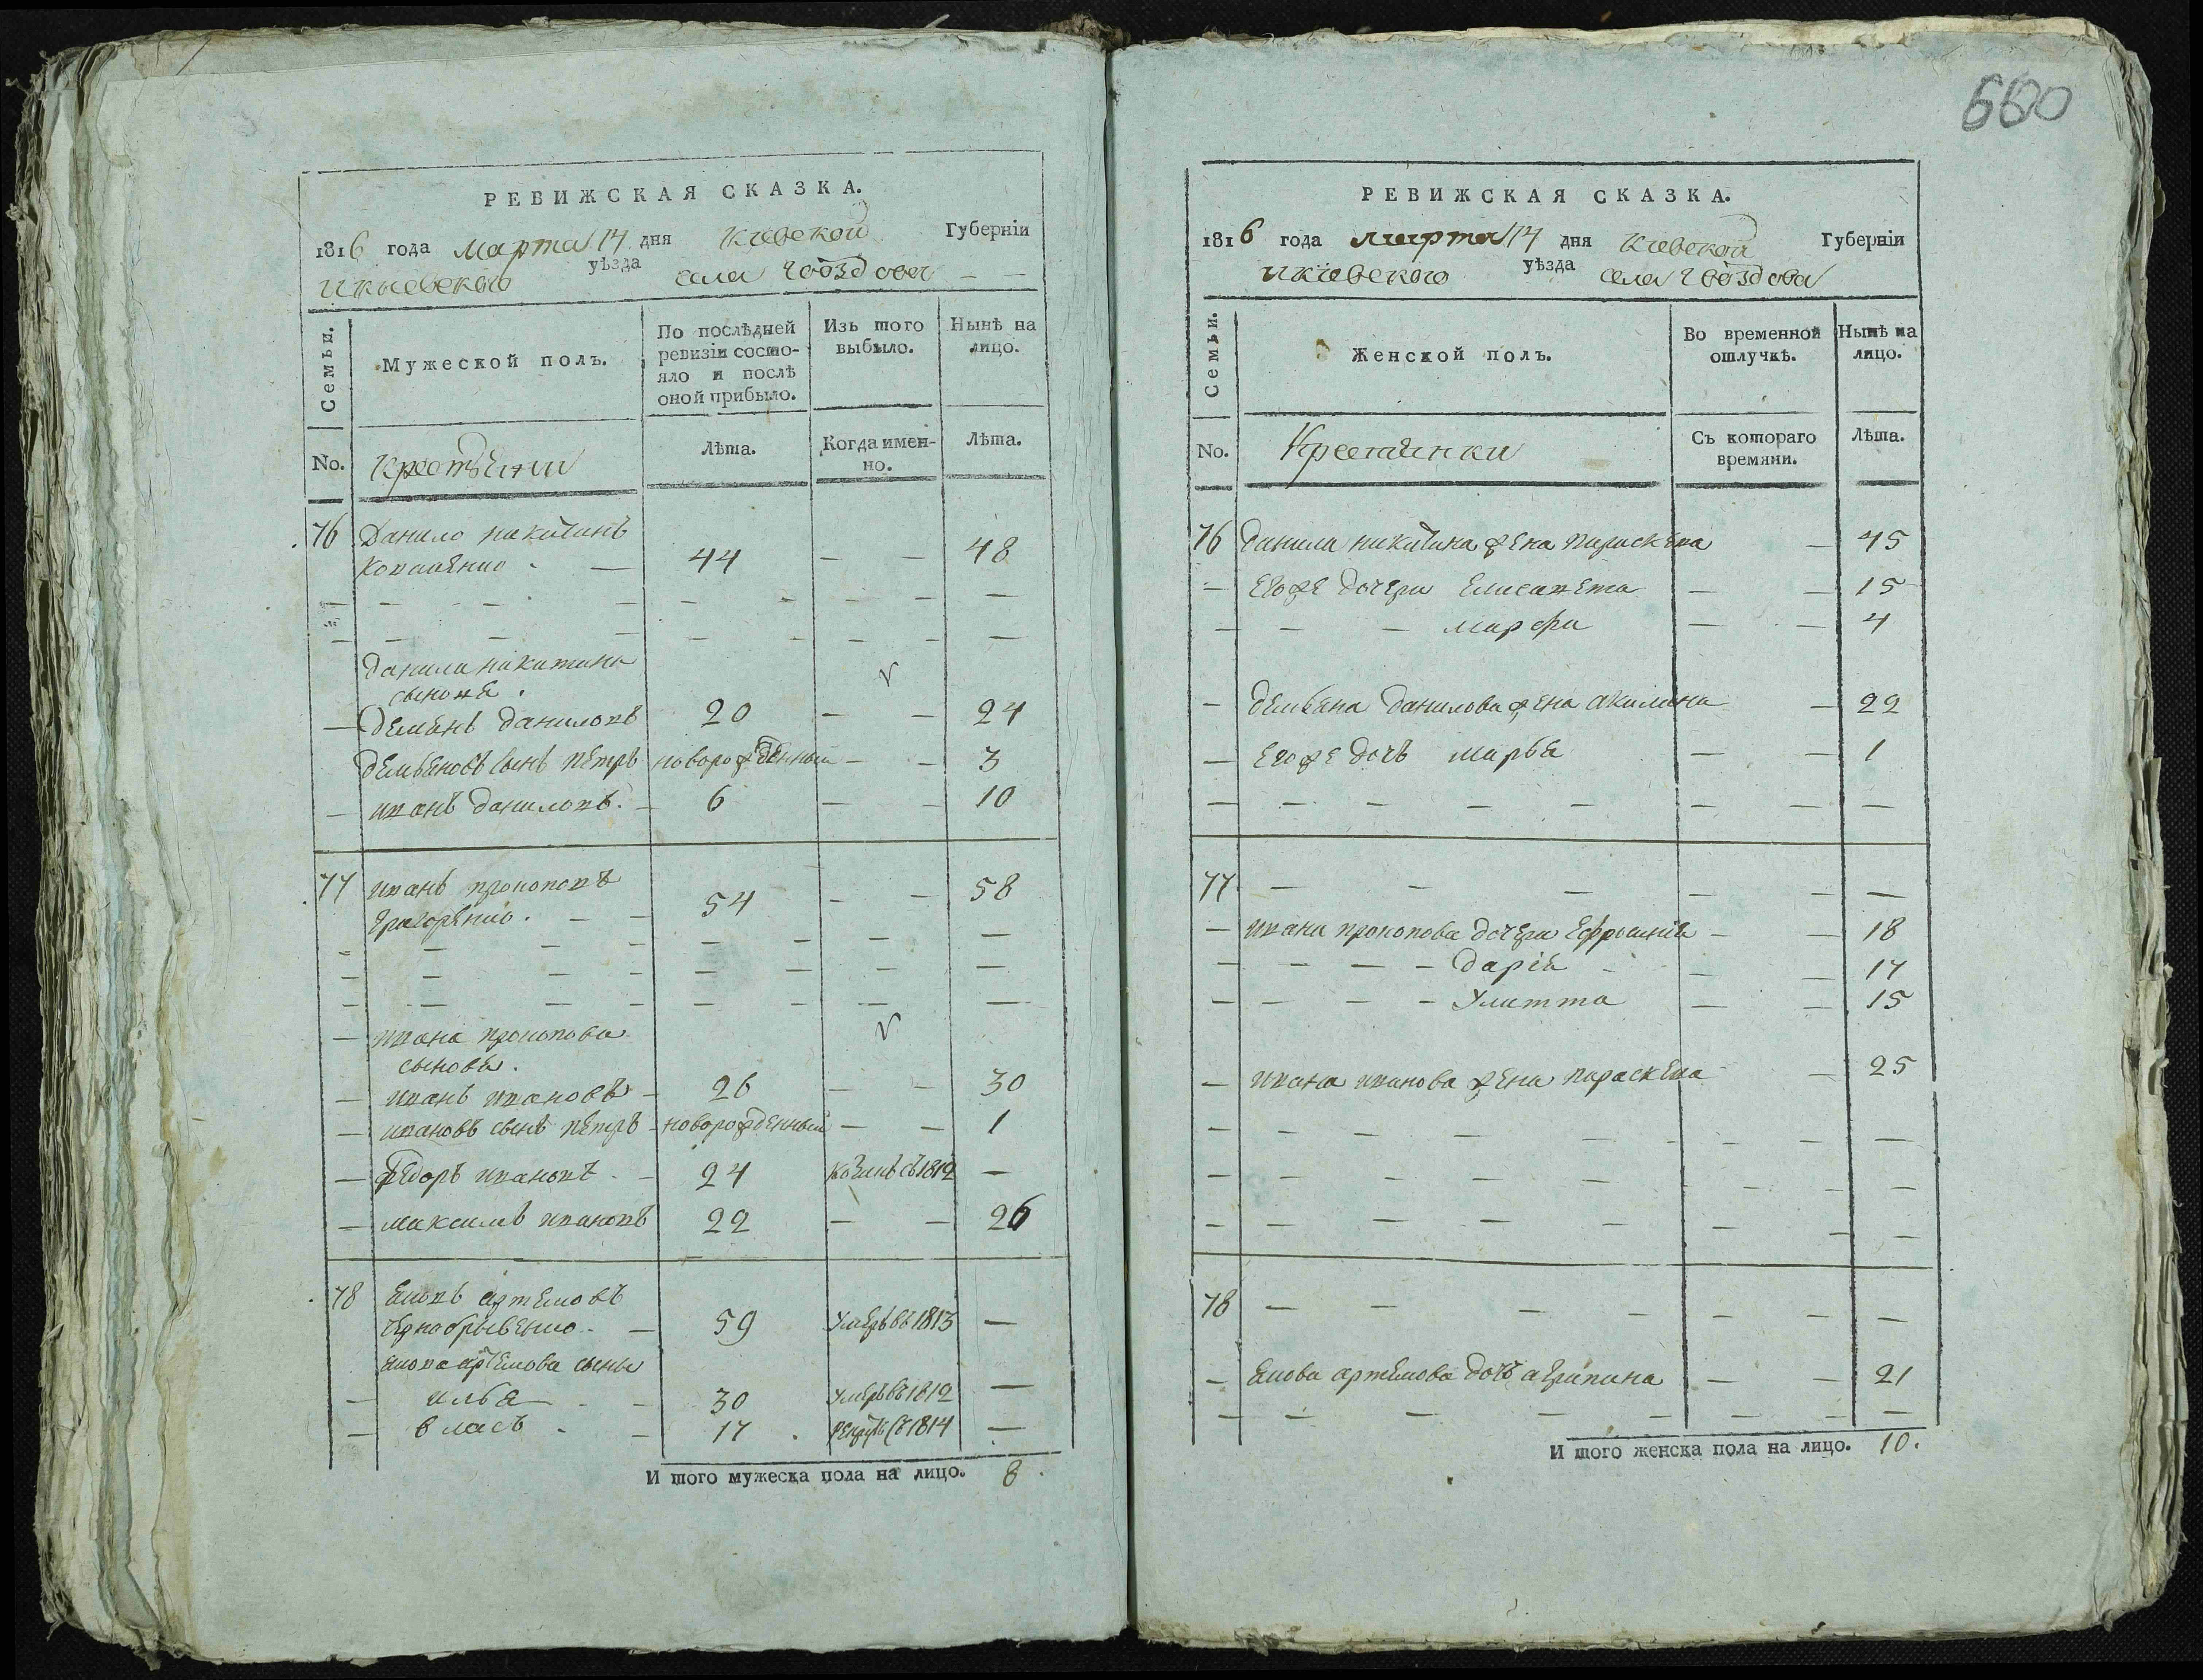 660
РЕВИЖСКАЯ СКАЗКА.
1816 года марта 14 дня Киевской Губерніи
и киевского уѣзда села Гвоздова — —
Семьи.
Мужеской полъ.
По послѣдней ревизіи состо-
яло и послѣ
оной прибыло.
Изъ того выбыло.
Нынѣ на лицо.
No.
Крестьяни
Лѣта.
Когда имен-
но.
Лѣта.
76 Данило никитинъ
44 — — 48
Данила никитина
сыновя.
— Демянъ Даниловъ 20 — — 24
Демьяновъ сынъ Петръ новорожденный — — 3
— иванъ Даниловъ. — 6 — — 10
77 иванъ прокоповъ
Григоренко. — — 54 — — 58
— ивана прокопова
сыновя.
— иванъ ивановъ — 26 — — 30
— ивановъ сынъ Петръ — новорожденный — — 1
— Федоръ ивановъ — 24 1812 —
— максимъ ивановъ 22 — — 26
78 Яковъ артемовъ
— 59 умеръ въ 1813 —
Якова артемова сыны
— илья — — 30 умеръ въ 1812 —
— власъ — — 17 1814 —
И того мужеска пола на лицо. 8.
РЕВИЖСКАЯ СКАЗКА.
1816 года марта 14 дня Киевской Губерніи
и кіевского уѣзда села Гвоздова
Семьи.
Женской полъ.
Во временной
отлучкѣ.
Нынѣ на
лицо.
No.
Крестянки
Съ котораго
времяни.
Лѣта.
76 Данила никитина жена Параскева — 45
— Егоже дочери Елисавета — — 15
— — — марфа — — 4
— демьяна данилова жена акилина — 22
— Егоже дочъ марья — — 1
77 — — — — — —
— ивана прокопова дочери Ефросинія — — 18
— — — — Дарія — — — 17
— — — — Улитта — — 15
— ивана иванова жена параскева — 25
78 — — — — — —
— Якова артемова дочъ агрипина — — 21
И того женска пола на лицо. 10.